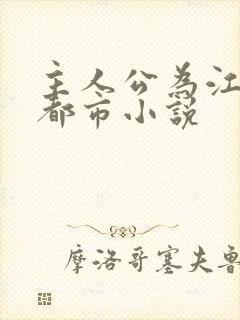 主人公為江
都市小説
摩洛哥塞夫魯